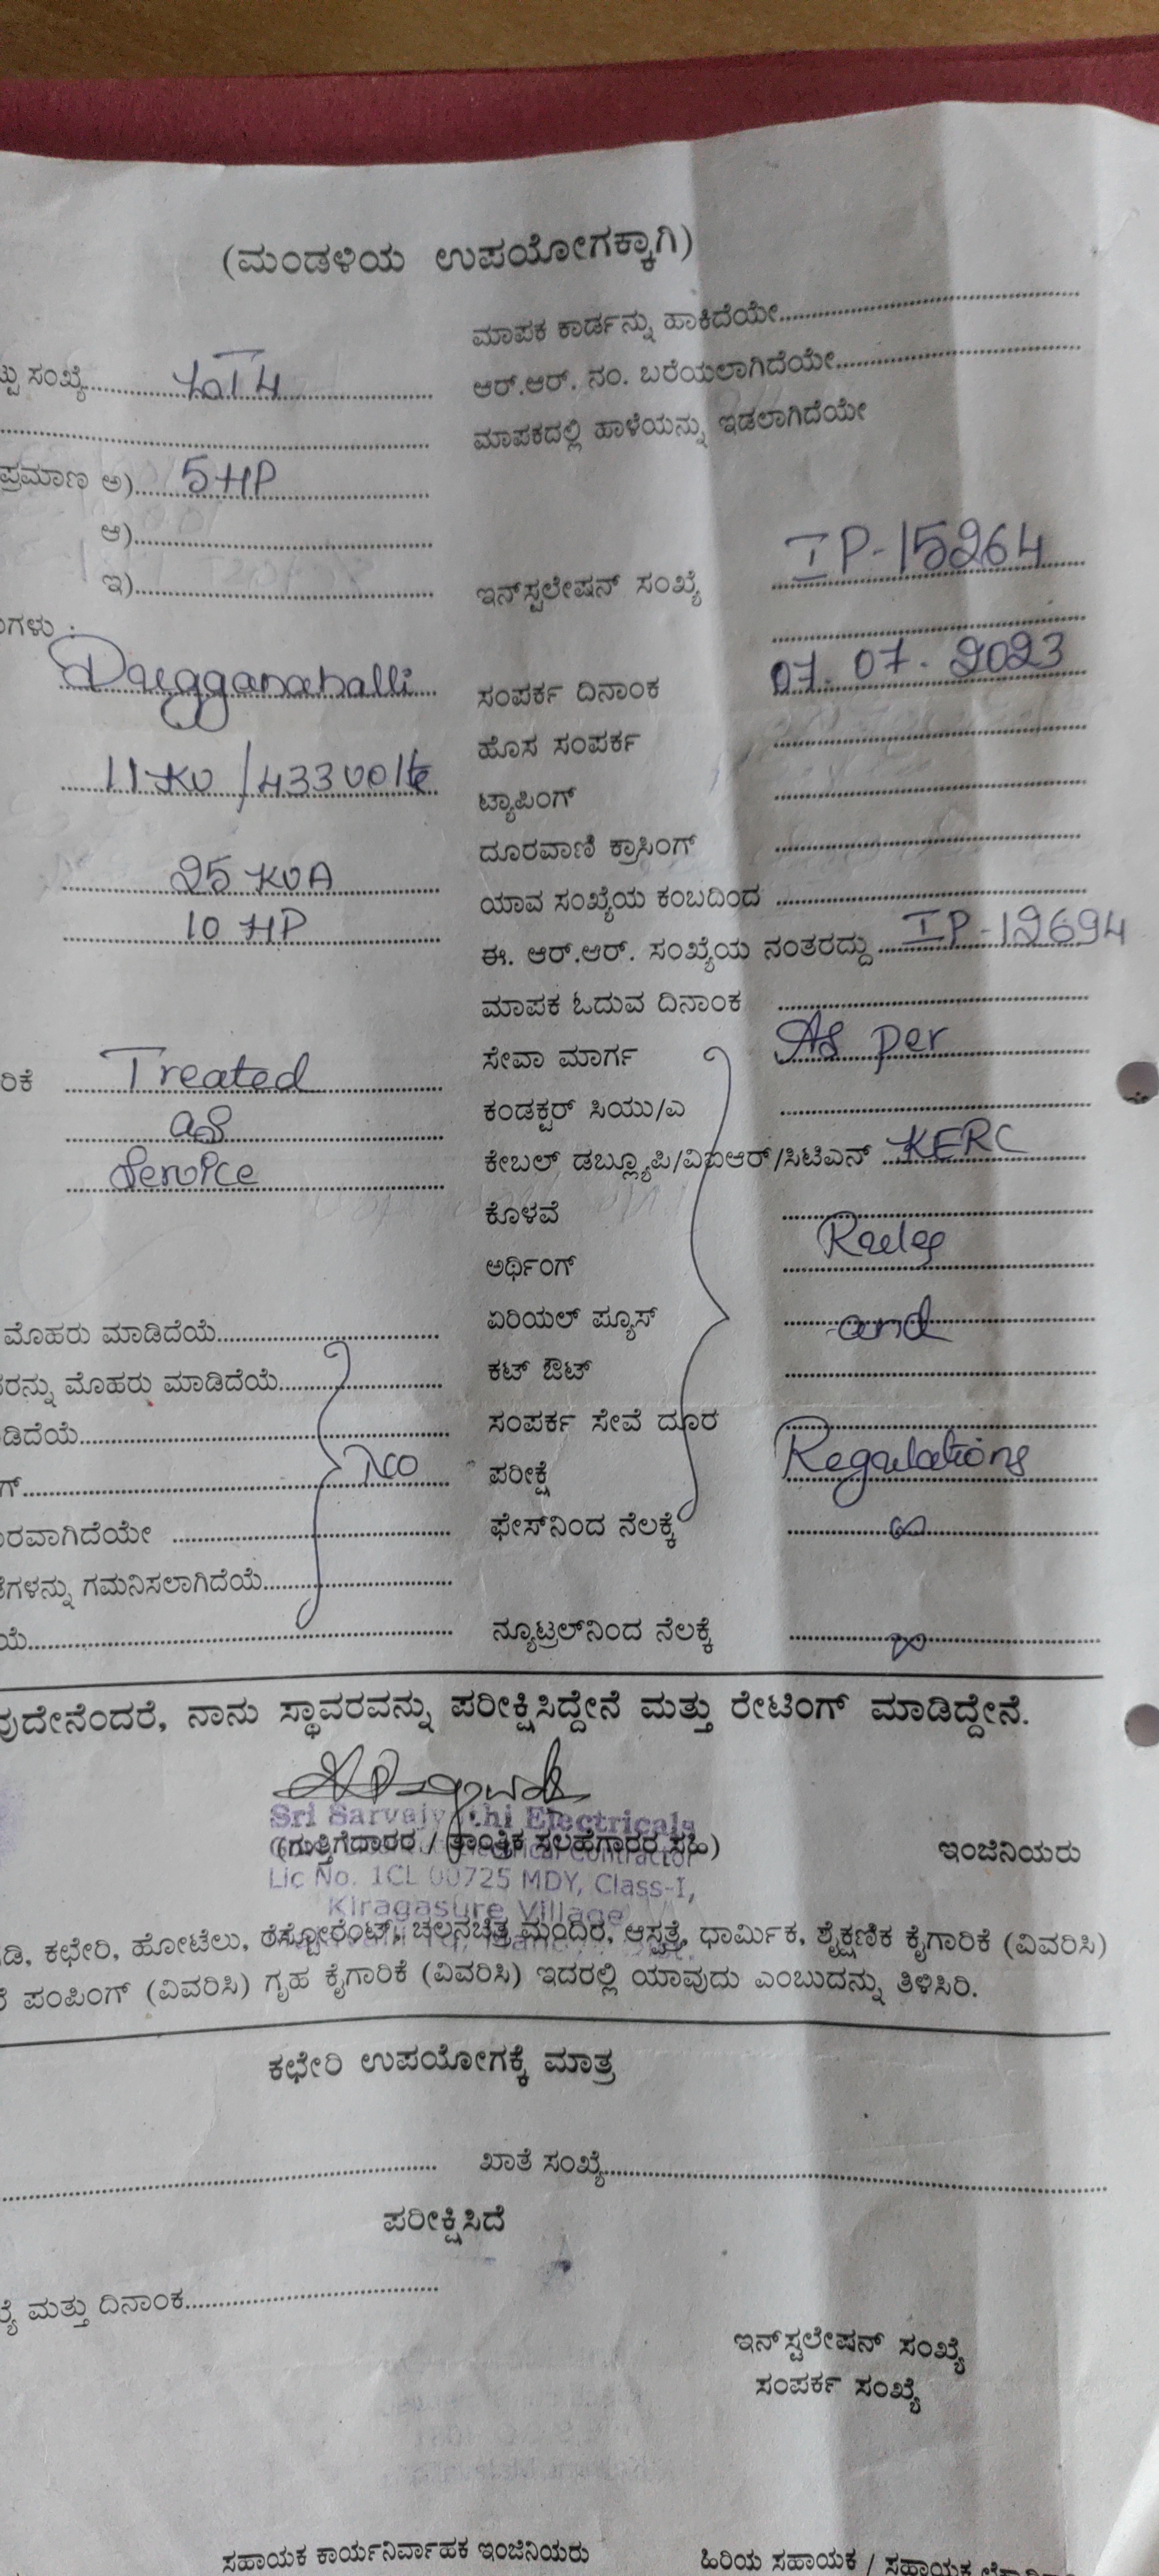 (ಮಂಡಳಿಯ ಉಪಯೋಗಕ್ಕಾಗಿ)
ಮಾಪಕ ಕಾರ್ಡನ್ನು ಹಾಕಿದೆಯೇ
ಸಂಖ್ಯೆ
ಆರ್.ಆರ್. ನಂ. ಬರೆಯಲಾಗಿದೆಯೇ
ಮಾಪಕದಲ್ಲಿ ಹಾಳೆಯನ್ನು ಇಡಲಾಗಿದೆಯೇ
ಪ್ರಮಾಣ ಅ) 5HP
ಆ)
ಇ)
ಇನ್‌ಸ್ಟಲೇಷನ್ ಸಂಖ್ಯೆ IP-15264
ಗಳು :
Dugganahalli
ಸಂಪರ್ಕ ದಿನಾಂಕ 07.07.2023
ಹೊಸ ಸಂಪರ್ಕ
11KV/433 volts
ಟ್ಯಾಪಿಂಗ್
ದೂರವಾಣಿ ಕ್ರಾಸಿಂಗ್
25 KVA
ಯಾವ ಸಂಖ್ಯೆಯ ಕಂಬದಿಂದ
10 HP
ಈ. ಆರ್.ಆರ್. ಸಂಖ್ಯೆಯ ನಂತರದ್ದು IP-12694
ಮಾಪಕ ಓದುವ ದಿನಾಂಕ
ರಿಕೆ Treated
ಸೇವಾ ಮಾರ್ಗ As per
as
ಕಂಡಕ್ಟರ್ ಸಿಯು/ಎ
Service
ಕೇಬಲ್ ಡಬ್ಲ್ಯೂಪಿ/ವಿಐಆರ್/ಸಿಟಿಎನ್ KERC
ಕೊಳವೆ
ಅರ್ಥಿಂಗ್ Rules
ಮೊಹರು ಮಾಡಿದೆಯೆ
ಏರಿಯಲ್ ಪ್ಯೂಸ್ and
ರನ್ನು ಮೊಹರು ಮಾಡಿದೆಯೆ
ಕಟ್ ಔಟ್
ಡಿದೆಯೆ
ಸಂಪರ್ಕ ಸೇವೆ ದೂರ
ಗ್ No
ಪರೀಕ್ಷೆ Regulations
ರವಾಗಿದೆಯೇ
ಫೇಸ್‌ನಿಂದ ನೆಲಕ್ಕೆ ∞
ಗಳನ್ನು ಗಮನಿಸಲಾಗಿದೆಯೆ
ಯೆ
ನ್ಯೂಟ್ರಲ್‌ನಿಂದ ನೆಲಕ್ಕೆ ∞
ವುದೇನೆಂದರೆ, ನಾನು ಸ್ಥಾವರವನ್ನು ಪರೀಕ್ಷಿಸಿದ್ದೇನೆ ಮತ್ತು ರೇಟಿಂಗ್ ಮಾಡಿದ್ದೇನೆ.
Sri Sarvajyothi Electricals
(ಗುತ್ತಿಗೆದಾರರ / ತಾಂತ್ರಿಕ ಸಲಹೆಗಾರರ ಸಹಿ)
ಇಂಜಿನಿಯರು
Electrical Contractor
Lic No. 1CL 00725 MDY, Class-I,
Kiragasure Village
ಡಿ, ಕಛೇರಿ, ಹೋಟೆಲು, ರೆಸ್ಟೋರೆಂಟ್, ಚಲನಚಿತ್ರ ಮಂದಿರ, ಆಸ್ಪತ್ರೆ, ಧಾರ್ಮಿಕ, ಶೈಕ್ಷಣಿಕ ಕೈಗಾರಿಕೆ (ವಿವರಿಸಿ)
ಪಂಪಿಂಗ್ (ವಿವರಿಸಿ) ಗೃಹ ಕೈಗಾರಿಕೆ (ವಿವರಿಸಿ) ಇದರಲ್ಲಿ ಯಾವುದು ಎಂಬುದನ್ನು ತಿಳಿಸಿರಿ.
ಕಛೇರಿ ಉಪಯೋಗಕ್ಕೆ ಮಾತ್ರ
ಖಾತೆ ಸಂಖ್ಯೆ
ಪರೀಕ್ಷಿಸಿದೆ
ಮತ್ತು ದಿನಾಂಕ
ಇನ್‌ಸ್ಟಲೇಷನ್ ಸಂಖ್ಯೆ
ಸಂಪರ್ಕ ಸಂಖ್ಯೆ
ಸಹಾಯಕ ಕಾರ್ಯನಿರ್ವಾಹಕ ಇಂಜಿನಿಯರು
ಹಿರಿಯ ಸಹಾಯಕ / ಸಹಾಯಕ